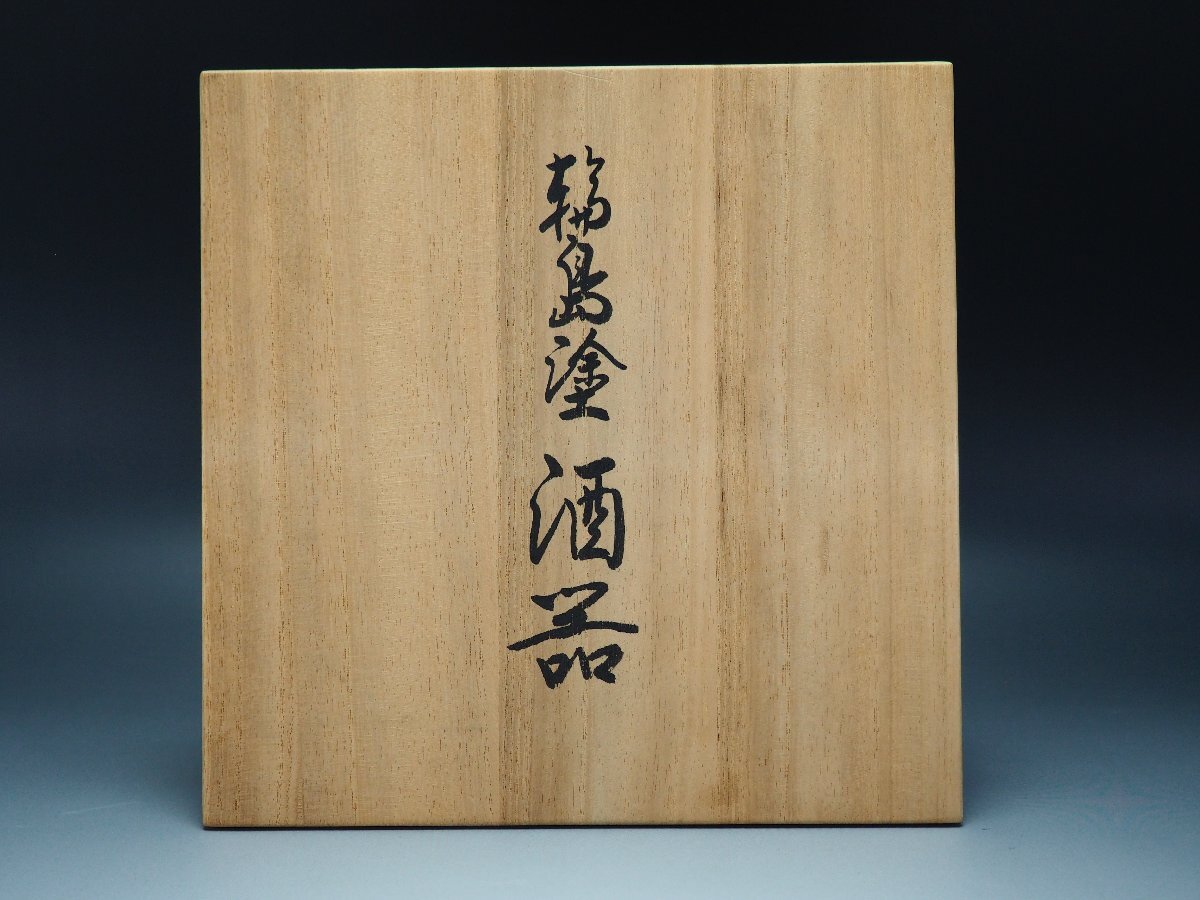 輪島塗 酒器